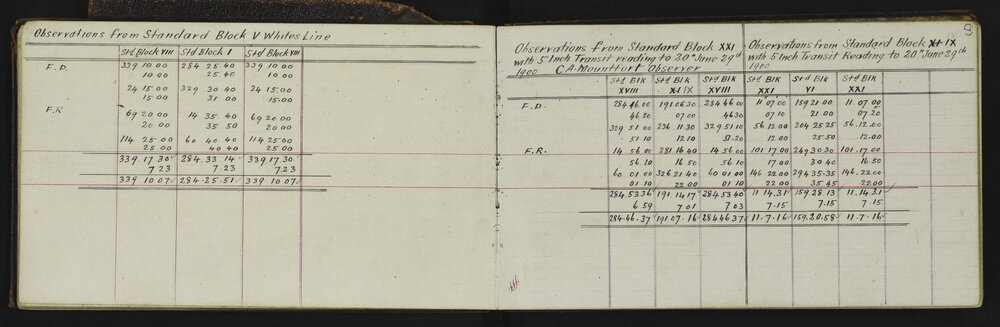 Observations from Standard Block V Whites Line
Std Block VIII Std Block I Std Block VIII
F.D. 339 10 00 284 25 40 339 10 00
10 00 25 40 10.00
24 15 00 329 30 40 24 15.00
15 00 31 00 15.00
F.R 69 20 00 14 35 40 69 20.00
20 00 35 50 20.00
114 25 00 60 40 40 114 25 00
25 00 40 40 25 00
339 17 30 284.33 14 339 17.30
7.23 7.23 7.23
339 10 07 284.25.51 339 10 07
8
Observations from Standard Block XXI
with 5 Inch Transit reading to 20" June 29th
1900 C.A. Mountfort Observer
Std Blk Std Blk Std Blk
XVIII XIX XVIII
F.D. 284 46.00 191 06 30 284 46 00
46 20 07 00 46 30
329 51 00 236 11 30 329 51 10
51 10 12 10 51.20
F.R. 14 56 00 281 16 40 14 56 00
56 20 16 50 56 10
60 01 00 326 21 40 60 01 00
01 10 22 00 01 10
284 53 36 191 14 17 284 53 40
6 59 7 01 7 03
284.46.37 191 07.16 284 46 37
Observations from Standard Block XI IX
with 5 Inch Transit Reading to 20" June 29th
1900
Std Blk Std Blk Std Blk
XXI VI XXI
11 07 00 159 21 00 11. 07 00
07 10 21.00 07 20
56 12 00 204 25 25 56.12.00
12.00 25 50 12.00
101 17 00 249 30 30 101.17.00
17.00 30 40 16 50
146 22 00 294 35 35 146.22.00
22 00 35 45 22 00
11 14.31 159 28 13 11.14 31
7.15 7.15 7.15
11.7.16 159.20.58 11.7.16